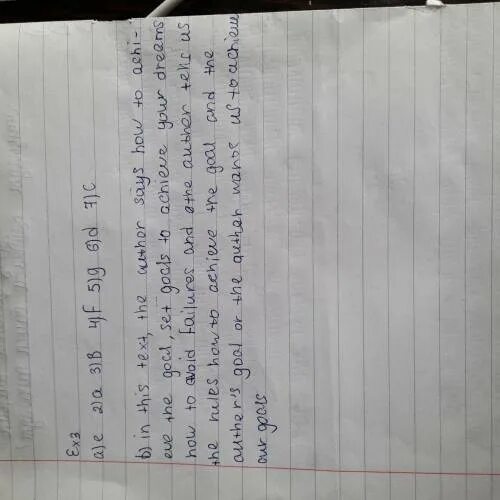 Ex3
a)e 2)a 3)B 4)F 5)g 6)d 7)C
b) in this text, the author says how to achi-
eve the goal, set goals to achieve your dreams
how to avoid failures and the auther tells us
the rules how to achieve the goal and the
auther's goal or the auther wants us to achieve
our goals